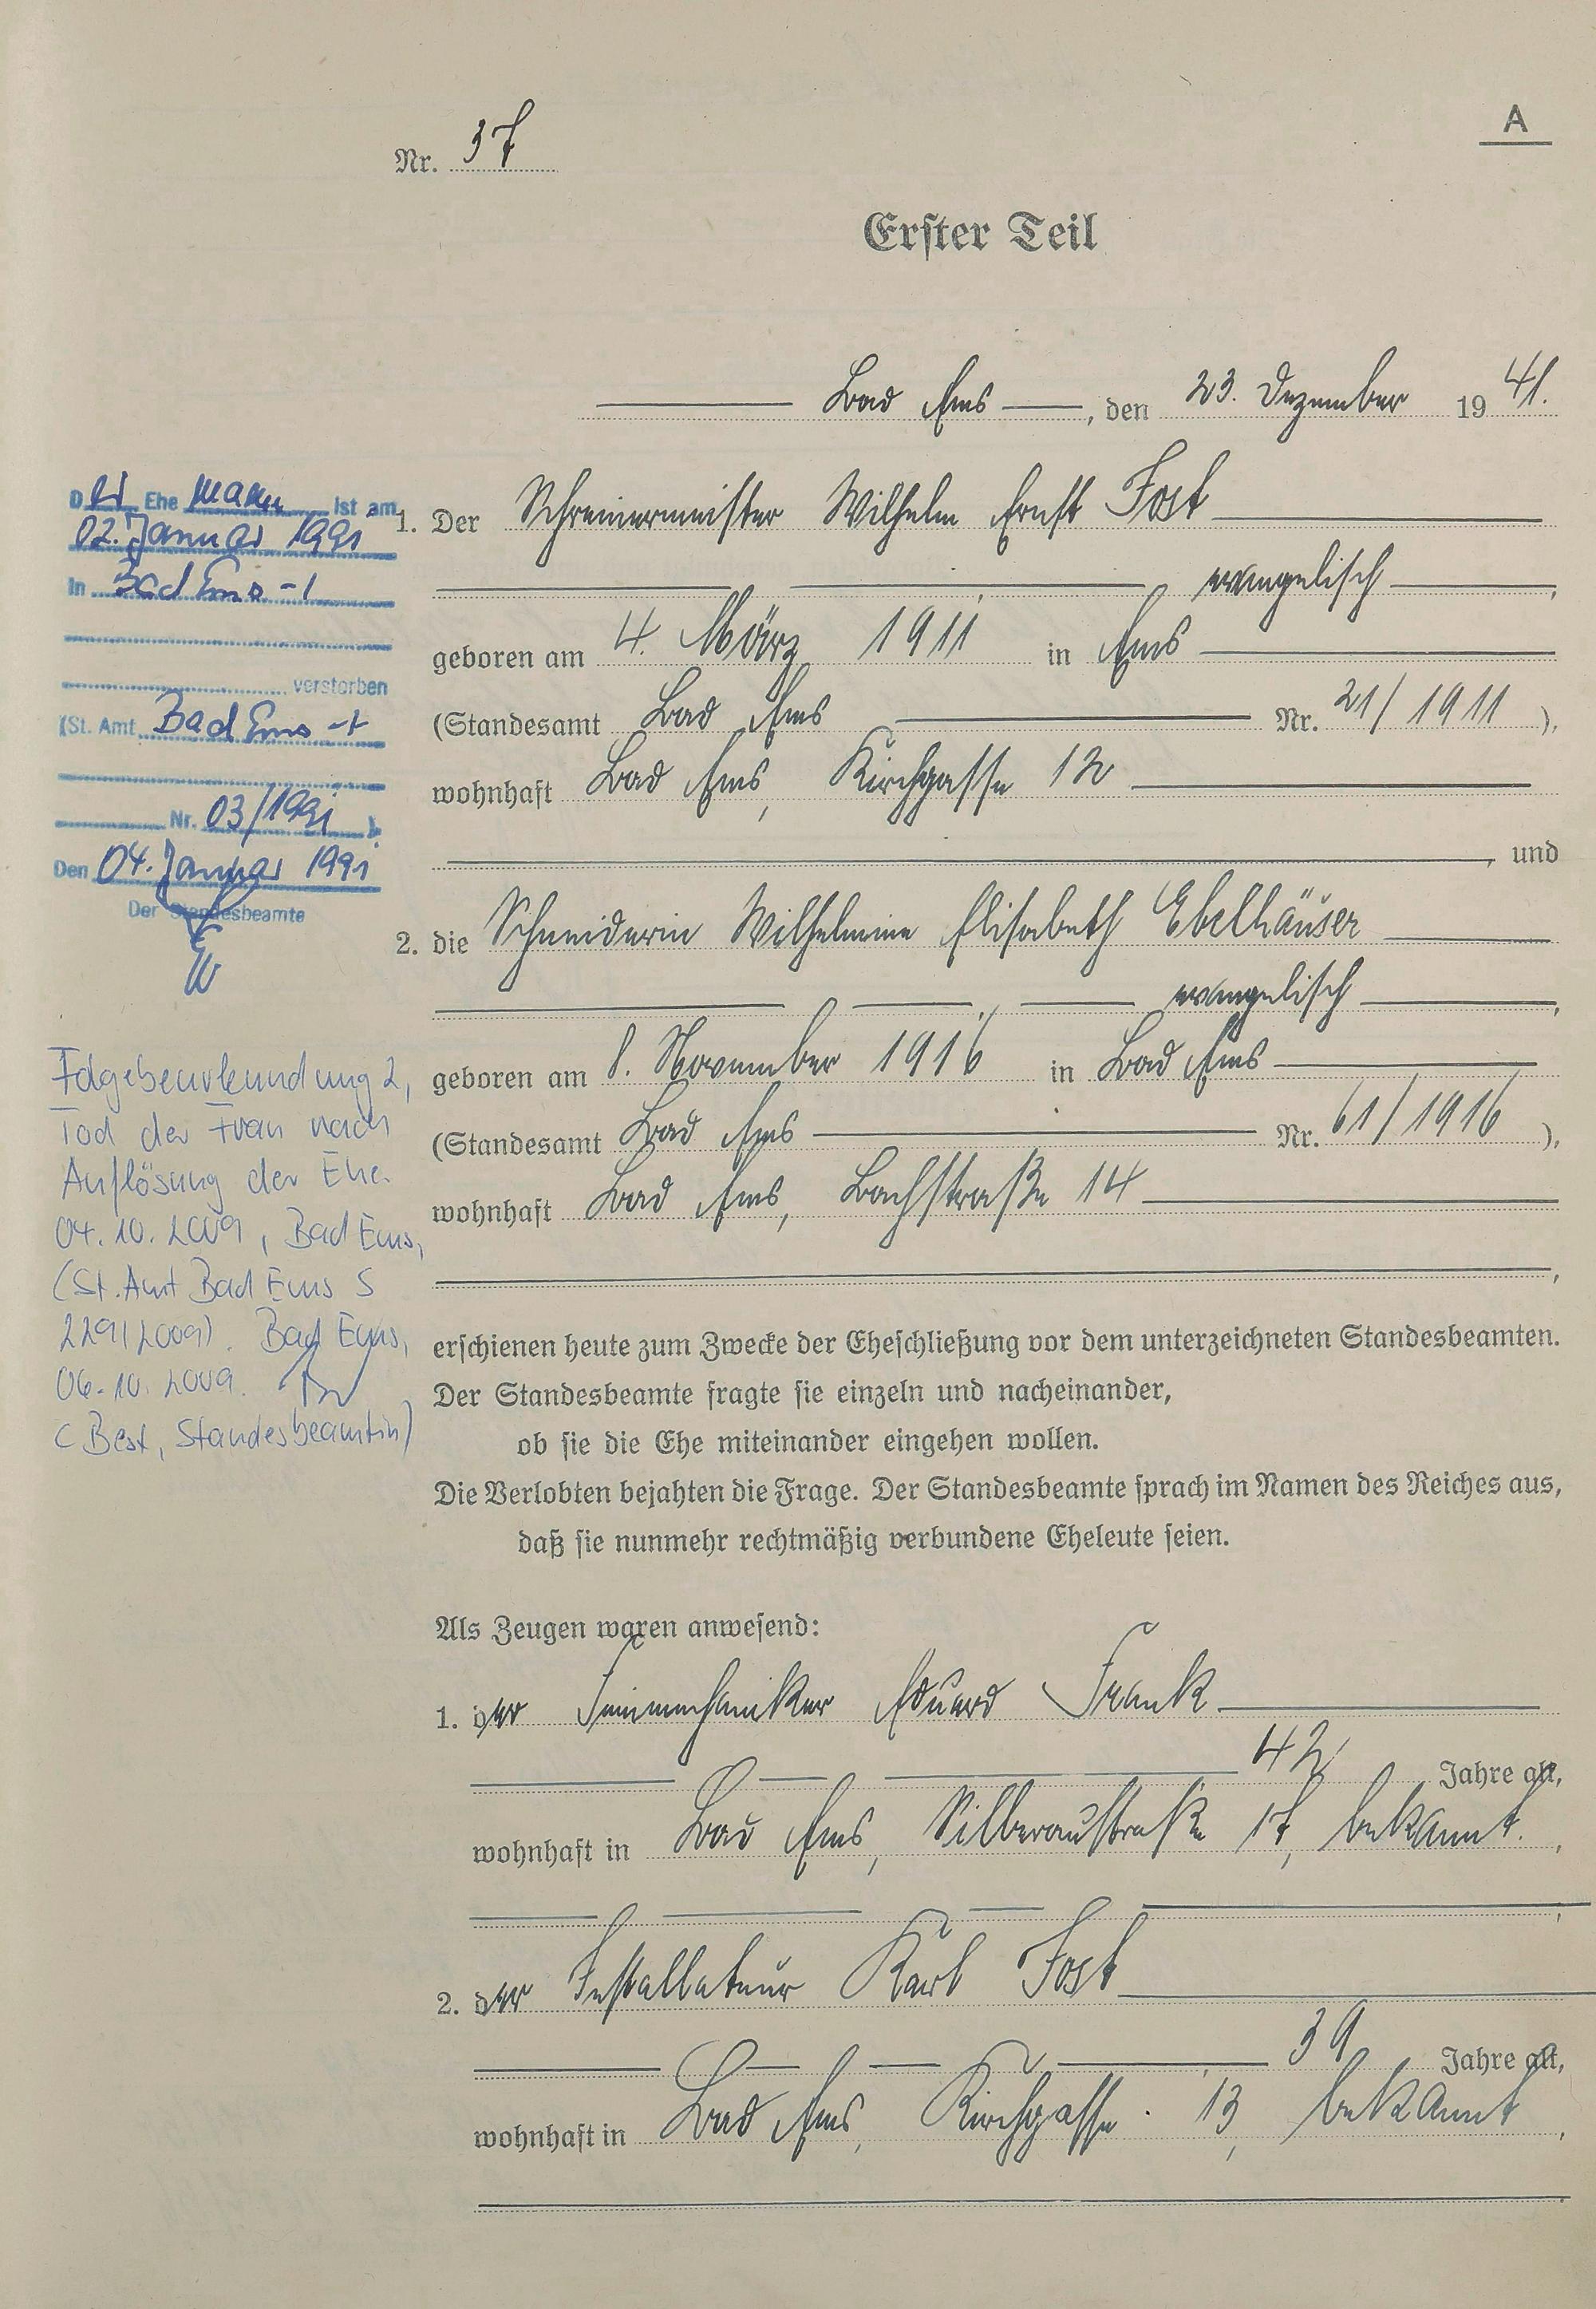 A
Nr. 37
Erster Teil
Bad Ems, den 23. Dezember 1941.
1. Der Schreinermeister Wilhelm Ernst Fost
evangelisch,
geboren am 4. März 1911 in Ems
(Standesamt Bad Ems Nr. 21/1911),
wohnhaft Bad Ems, Kirchgasse 12
, und
2. die Schneiderin Wilhelmine Elisabeth Ebelhäuser
evangelisch,
geboren am 8. November 1916 in Bad Ems
(Standesamt Bad Ems Nr. 61/1916),
wohnhaft Bad Ems, Bachstraße 14
,
erschienen heute zum Zwecke der Eheschließung vor dem unterzeichneten Standesbeamten.
Der Standesbeamte fragte sie einzeln und nacheinander,
ob sie die Ehe miteinander eingehen wollen.
Die Verlobten bejahten die Frage. Der Standesbeamte sprach im Namen des Reiches aus,
daß sie nunmehr rechtmäßig verbundene Eheleute seien.
Als Zeugen waren anwesend:
1. der Feinmechaniker Eduard Frank
42 Jahre alt,
wohnhaft in Bad Ems, Silberaustraße 17, bekannt.,
2. der Installateur Karl Fost
39 Jahre alt,
wohnhaft in Bad Ems, Kirchgasse 13, bekannt,
Der Ehemann ist am
02. Januar 1991
in Bad Ems -/-
verstorben
(St. Amt Bad Ems -/-
Nr. 03/1991).
Den 04. Januar 1991
Der Standesbeamte
Folgebeurkundung 2,
Tod der Frau nach
Auflösung der Ehe.
04.10.2009, Bad Ems,
(St. Amt Bad Ems S
229/2009). Bad Ems,
06.10.2009.
(Best, Standesbeamtin)